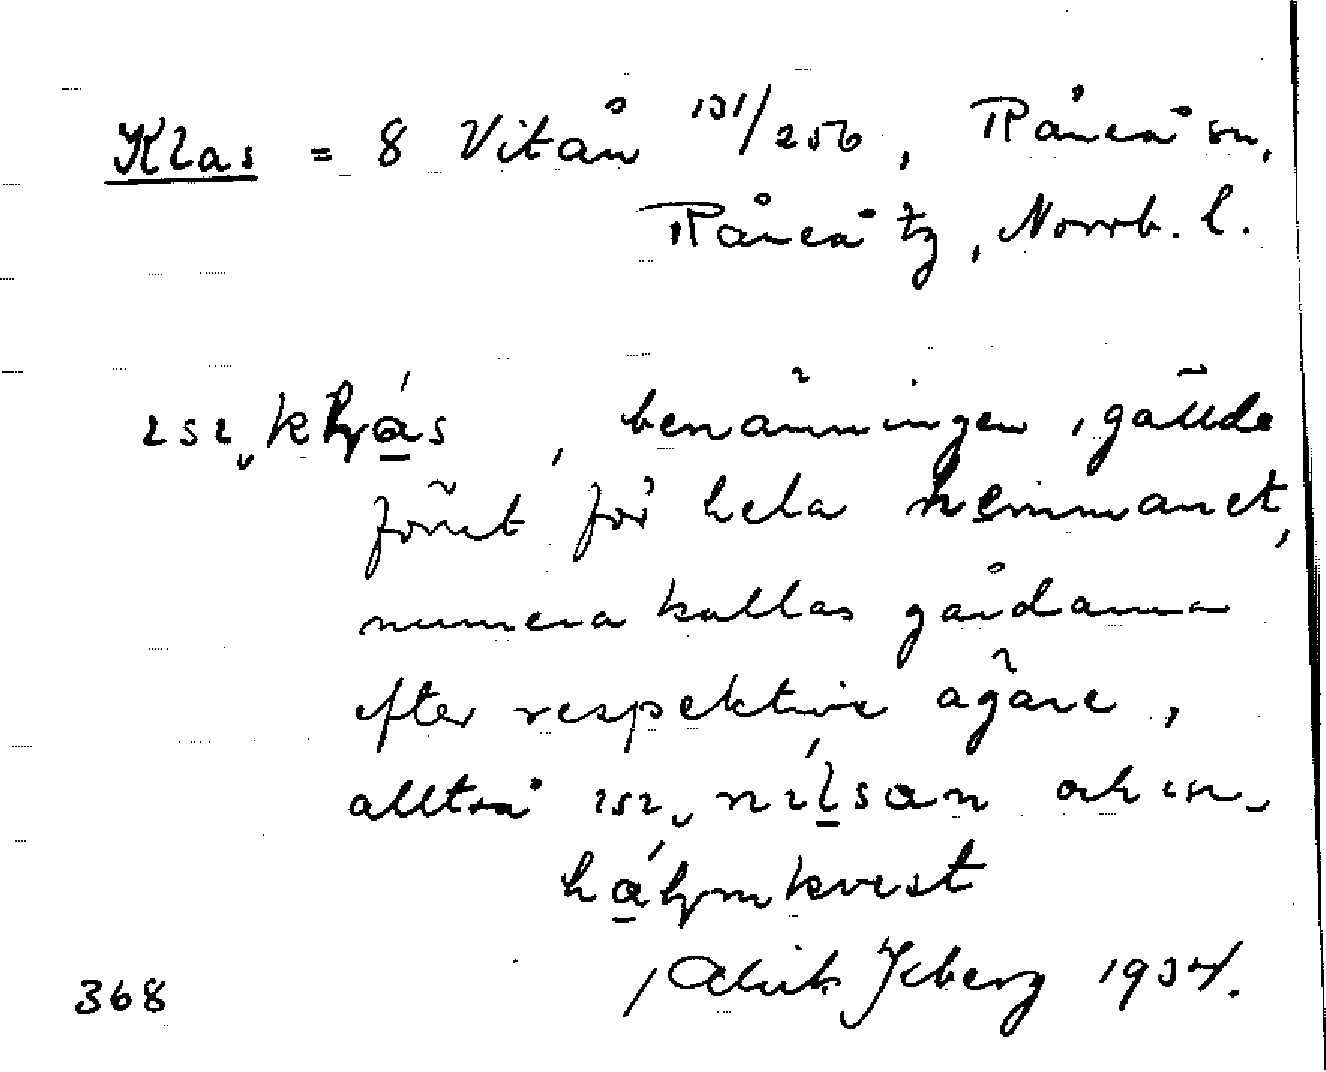 Klas = 8 Vitån 131/256, Råneå sn,
Råneå tg, Norrb. l.
benämningen, gällde
förut för hela hemmanet,
numera kallas gårdarna
efter respektive ägare,
alltså och
Isberg 1934.
368